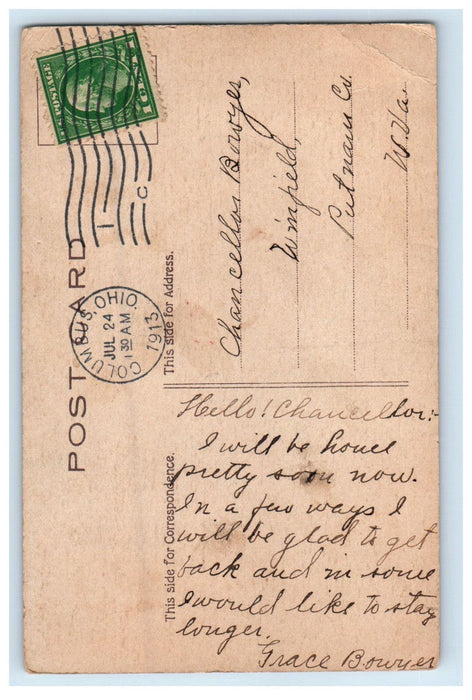 POST CARD
COLUMBUS, OHIO.
JUL 24
1 30 AM
1913
1 C
POSTAGE
1 CENT 1
This side for Address.
Chancellor Bowyer,
Winfield,
Putnam Co.
W.Va.
This side for Correspondence.
Hello! Chancellor:-
I will be home
pretty soon now.
In a few ways I
will be glad to get
back and in some
I would like to stay
longer.
Grace Bowyer